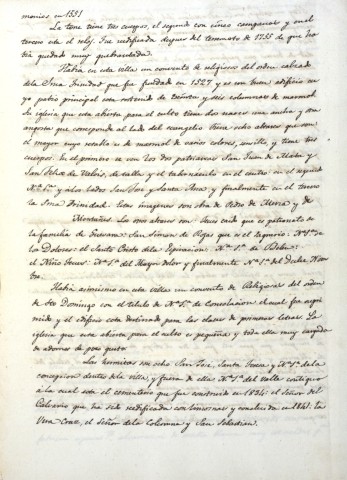 monios en 1551
La torre tiene tres cuerpos, el segundo con cinco campanas y en el
tercero esta el reloj. Fue reedificada despues del terremoto de 1755 de que ha-
bia quedado muy quebrantada.
Habia en esta villa un convento de religiosos del orden calzado
de la Sma Trinidad que fue fundado en 1527 y es un buen edificio en
yo patio principal esta sostenido de treinta y seis columnas de marmol.
Su iglesia que esta abierta para el culto tiene dos naves una ancha y otra
angosta que corresponde al lado del evangelio tiene ocho altares que son
el mayor cuyo retablo es de marmol de varios colores, sencillo, y tiene tres
cuerpos. En el primero se ven los dos patriarcas San Juan de Mata y
San Felix de Valois, de talla y el tabernaculo en el centro: en el segundo
Nª Sª y a los lados San Jose y Santa Ana y finalmente en el tercero
la Sma Trinidad. Estas imagenes son obra de Pedro de Mena y de
Montañes. Los otros altares son Jesus caido que es patronato de
la familia de San Simon de Rojas que es el segundo: Nª Sª de
los Dolores: el Santo Cristo de la Espiracion: Nª Sª de Belen:
el Niño Jesus: Nª Sª del Mayor dolor y finalmente Nª Sª del Dulce Nom-
bre.
Habia asimismo en esta villa un convento de Religiosas del orden
de Sto Domingo con el titulo de Nª Sª de Consolacion el cual fue supri-
mido y el edificio esta destinado para las clases de primeras letras. La
iglesia que esta abierta para el culto es pequeña y toda ella muy cargada
de adornos de poco gusto.
Las hermitas son ocho San Jose, Santa Teresa y Nª Sª de la
concepcion dentro de la villa, y fuera de ella Nª Sª del Valle contiguo
a la cual esta el cementerio que fue construido en 1834: el Señor del
Calvario que ha sido reedificada con limosnas y concluida en 1841: la
Vera Cruz, el Señor de la Columna y San Sebastian.